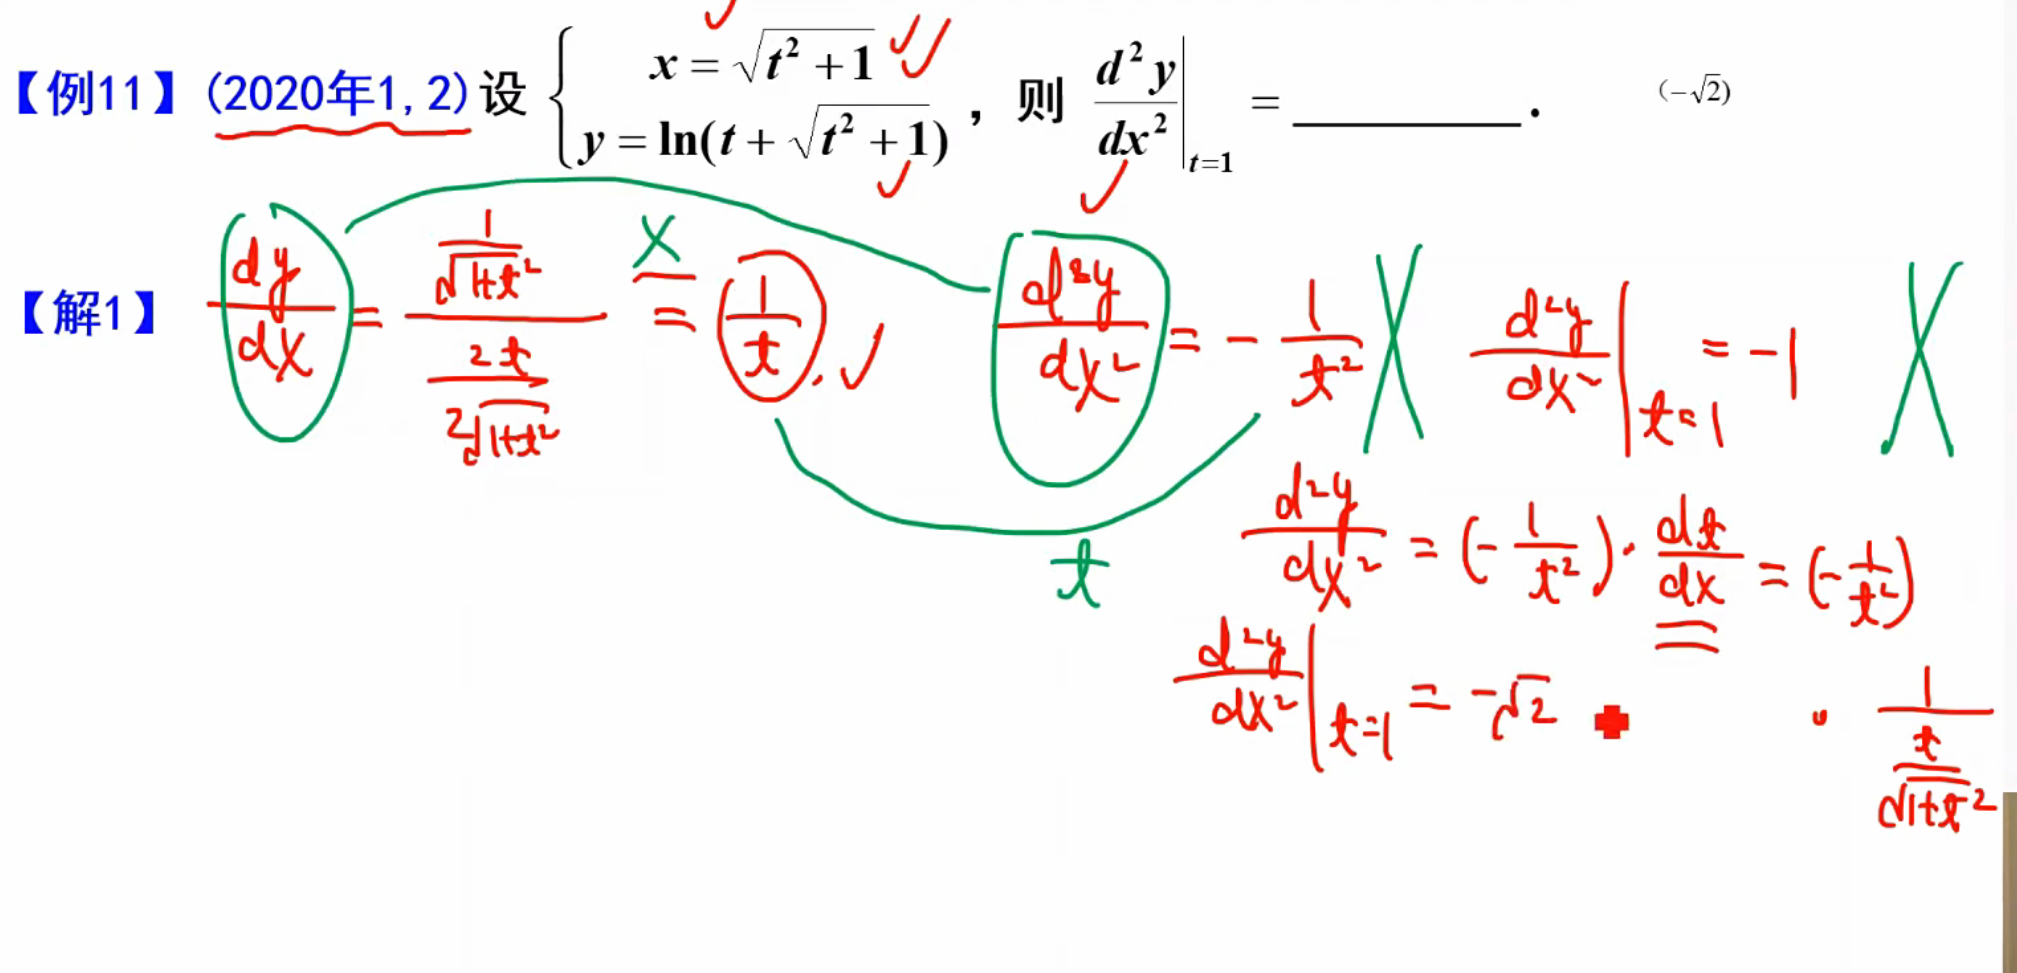 【例11】(2020年1,2)设 { x = √(t² + 1) , y = ln(t + √(t² + 1)) , 则 d²y/dx² |t=1 = ________ . (−√2)
【解1】 dy/dx = (1/√(1+t²))/(2t/(2√(1+t²))) = 1/t . d²y/dx² = − 1/t² d²y/dx² |t=1 = −1
x
t
d²y/dx² = (− 1/t²) · dt/dx = (− 1/t²)
· 1/(t/√(1+t²))
d²y/dx² |t=1 = −√2